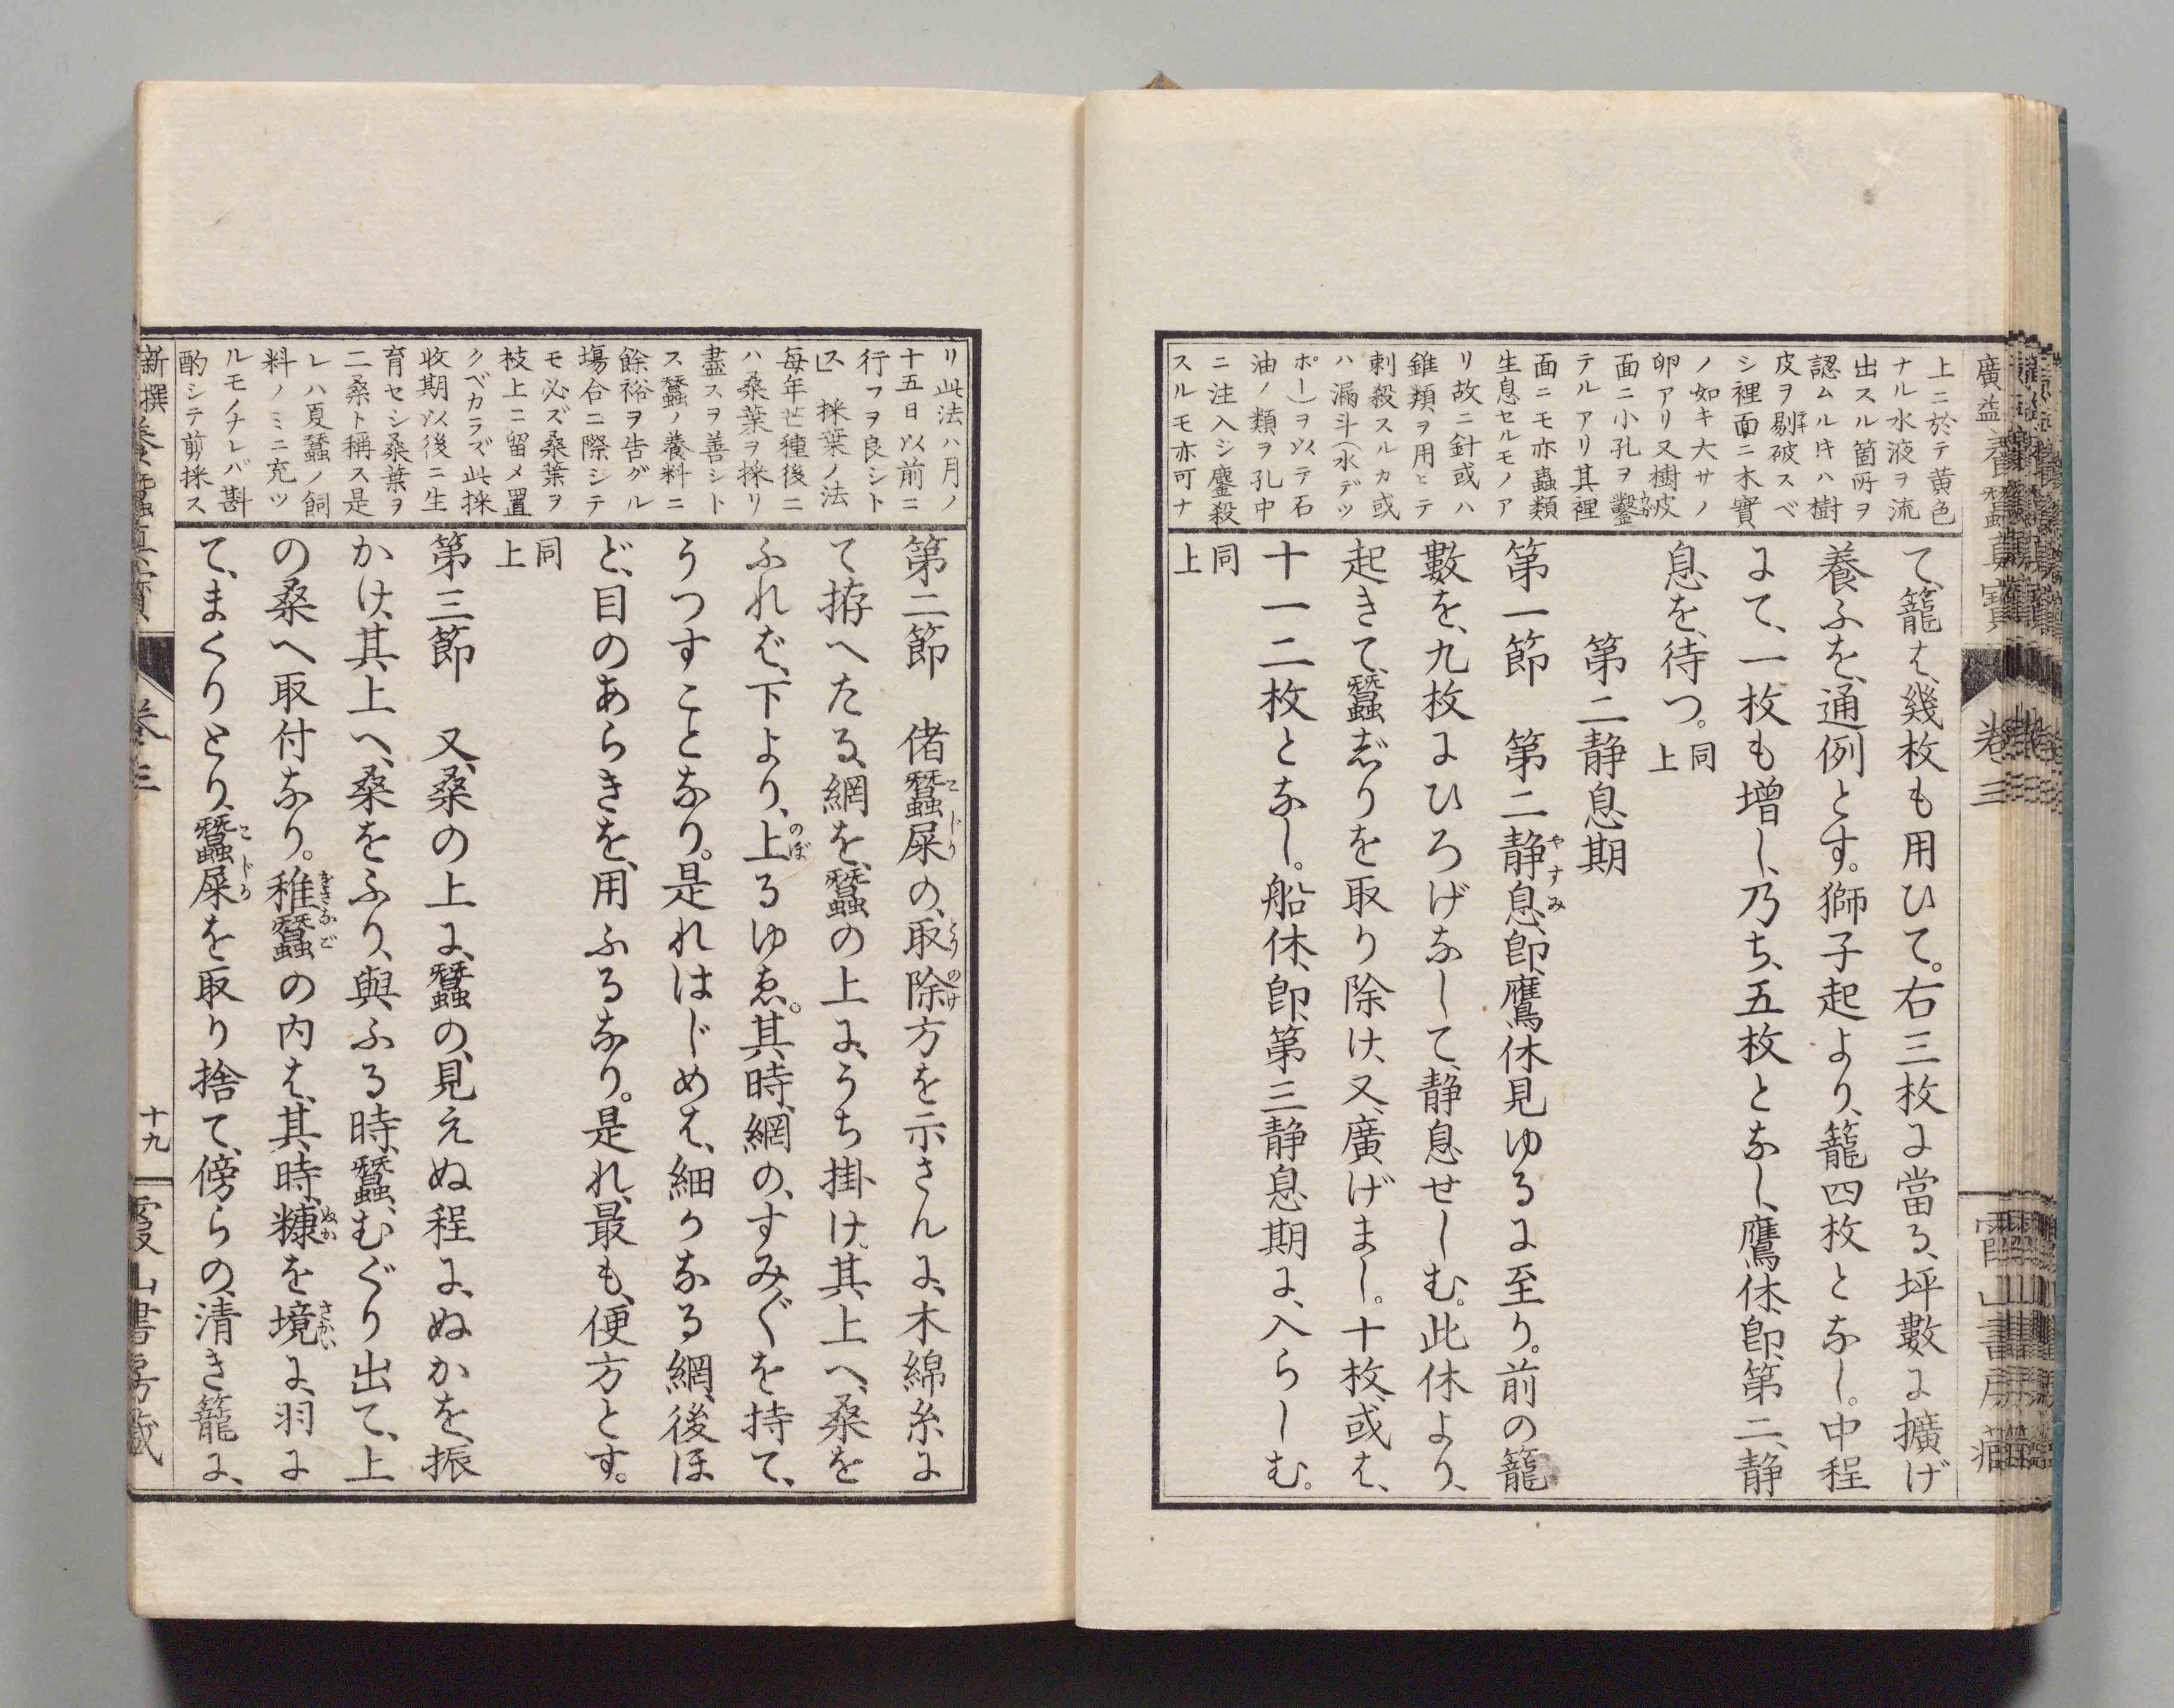 廣益養蠶眞寶 卷三
上ニ於テ黄色
ナル水液ヲ流
出スル箇所ヲ
認ムル𪜈ハ樹
皮ヲ剔破スベ
シ裡面ニ木實
ノ如キ大サノ
卵アリ又樹皮
面ニ小孔ヲ鑿
テルアリ其裡
面ニモ亦蟲類
生息セルモノア
リ故ニ針或ハ
錐類ヲ用ヒテ
刺殺スルカ或
ハ漏斗(水デッ
ポー)ヲ以テ石
油ノ類ヲ孔中
ニ注入シ鏖殺
スルモ亦可ナ
て、籠は、幾枚も用ひて。右三枚に當る、坪數に擴げ
養ふを、通例とす。獅子起より、籠四枚となし。中程
にて、一枚も増し、乃ち、五枚となし、鷹休、即、第二、静
息を、待つ。同上
第二静息期
第一節 第二静息、即、鷹休見ゆるに至り。前の籠
數を、九枚にひろげなして、静息せしむ。此休より、
起きて、蠶じりを取り除け、又、廣げまし。十枚、或は、
十一二枚となし。船休、即、第三静息期に、入らしむ。
同上
リ此法ハ月ノ
十五日以前ニ
行フヲ良シト
ス」採葉ノ法
毎年芒種後ニ
ハ桑葉ヲ採リ
盡スヲ善シト
ス蠶ノ養料ニ
餘裕ヲ告グル
塲合ニ際シテ
モ必ズ桑葉ヲ
枝上ニ留メ置
クベカラズ此採
收期以後ニ生
育セシ桑葉ヲ
二桑ト稱ス是
レハ夏蠶ノ飼
料ノミニ充ツ
ルモノナレバ斟
酌シテ剪採ス
第二節 偖蠶屎の、取除方を示さんに、木綿糸に
て拵へたる、網を、蠶の上に、うち掛け、其、上へ、桑を
ふれば、下より、上るゆゑ。其、時、網の、すみ〲を持て、
うつすことなり。是れはじめは、細かなる網、後ほ
ど、目のあらきを、用ふるなり。是れ、最も、便方とす。
同上
第三節 又、桑の上に、蠶の、見えぬ程に、ぬかを、振
かけ、其、上へ、桑をふり、與ふる時、蠶、むぐり出て、上
の桑へ取付なり。稚蠶の内は、其、時、糠を境に、羽に
て、まくりとり、蠶屎を取り捨て、傍らの、清き籠に、
新撰養蠶眞寶 卷三 十九 霞山書房藏